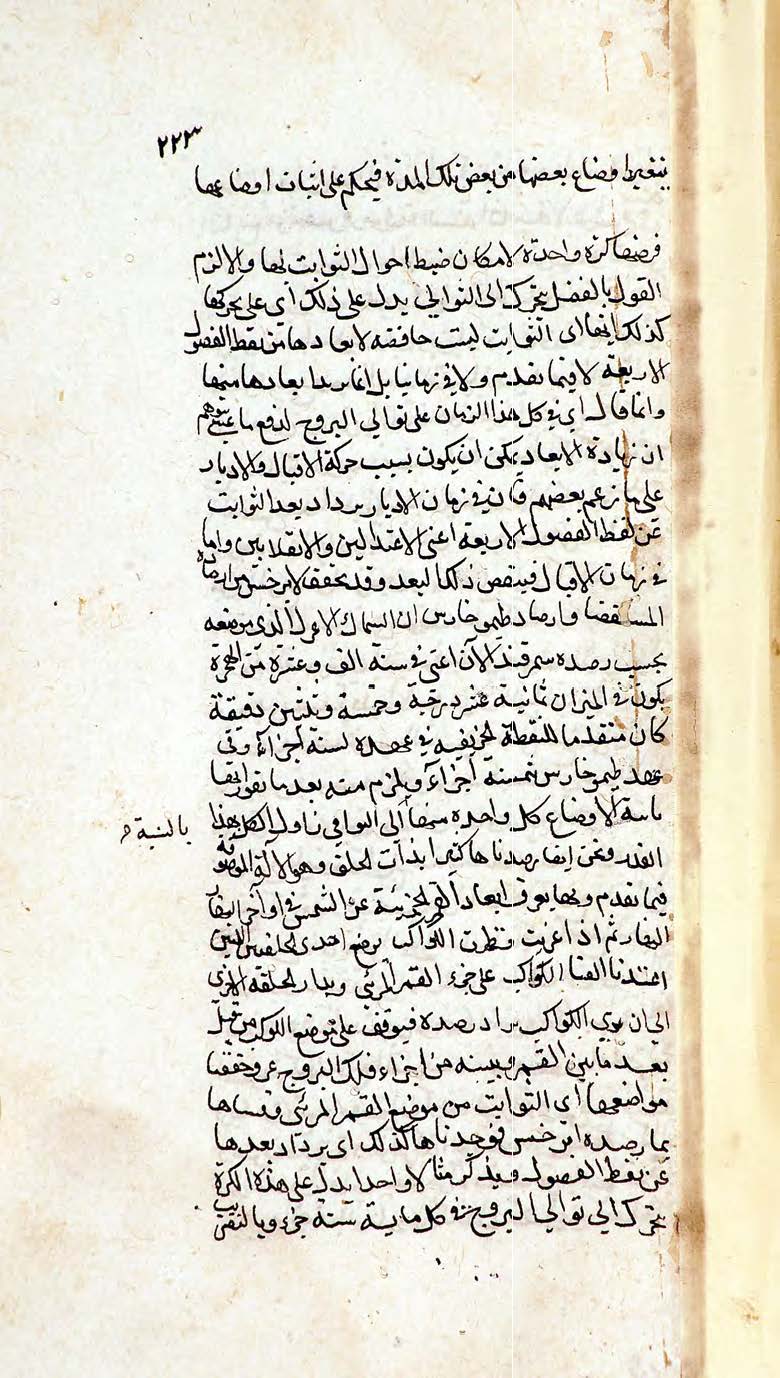 ٢٢٣
بتغير اوضاع بعضها من بعض تلك المدة فيحكم على اثبات اوضاعها
فرضها كرة واحدة لامكان ضبط احوال الثوابت بها والا لزم
القول بالفضل يتحرك الى التوالي يدل على ذلك أي على تحركها
كذلك انها اى الثوابت ليست حافظة لابعادها من نقط الفصول
الاربعة لا فيما تقدم ولا في زماننا بل انما يزداد بعادها منها
وانما قال اي في كل هذا الزمان على توالي البروج لدفع ما عسى يتوهم
ان زيادة الابعاد يمكن ان يكون بسبب حركة الاقبال والادبار
على ما زعم بعضهم فان في زمان الادبار يزداد بعد الثوابت
عن نقط الفصول الاربعة اعنى الاعتدالين والانقلابين واما
في زمان الاقبال فينقص ذلك البعد وقد تحقق لابرخس من ارصاده
وارصاد طيموخارس ان السماك الاعزل الذى موضعه
بحسب رصده سمرقند الآن اعنى في سنة الف وعشرة من الهجرة
يكون في الميزان ثمانية عشر درجة وخمسة وثلثين دقيقة
كان متقدما للنقطة الخريفيه في عهده لستة اجزاء وفى
عهد طيموخارس ثمنيه أجزاء ويلزم منه بعد ما تقرر انها
الاوضاع كل واحدة منها الى البواقي الكل بهذا
بالنسبة
القدر ونحن ايضا رصدناها كثيرا بذات الحلق وهو الآلة الموصوفة
فيما تقدم وبها يعرف ابعاد القمر الجزئية عن الشمس في اواخر
النهار ثم اذا غربت وظهرت الكواكب يوضع احدى الحلقتين اللتين
الكواكب على جزء القمر المرئي ويدار الحلقة الاخرى
الى ان يرى الكواكب يراد رصده فيوقف على موضع الكوكب من قبل
بعد ما بين القمر وبينه من اجزاء فلك البروج عروضها
مواضعها اى الثوابت من موضع القمر المرئي وقسناها
بما رصده ابرخس فوجدناها كذلك اى يزداد بعدها
عن نقط الفصول ويذكر مثالا واحدا يدل على هذه الكرة
يتحرك الى توالي البروج في كل ماية سنة جزء وبالتقريب